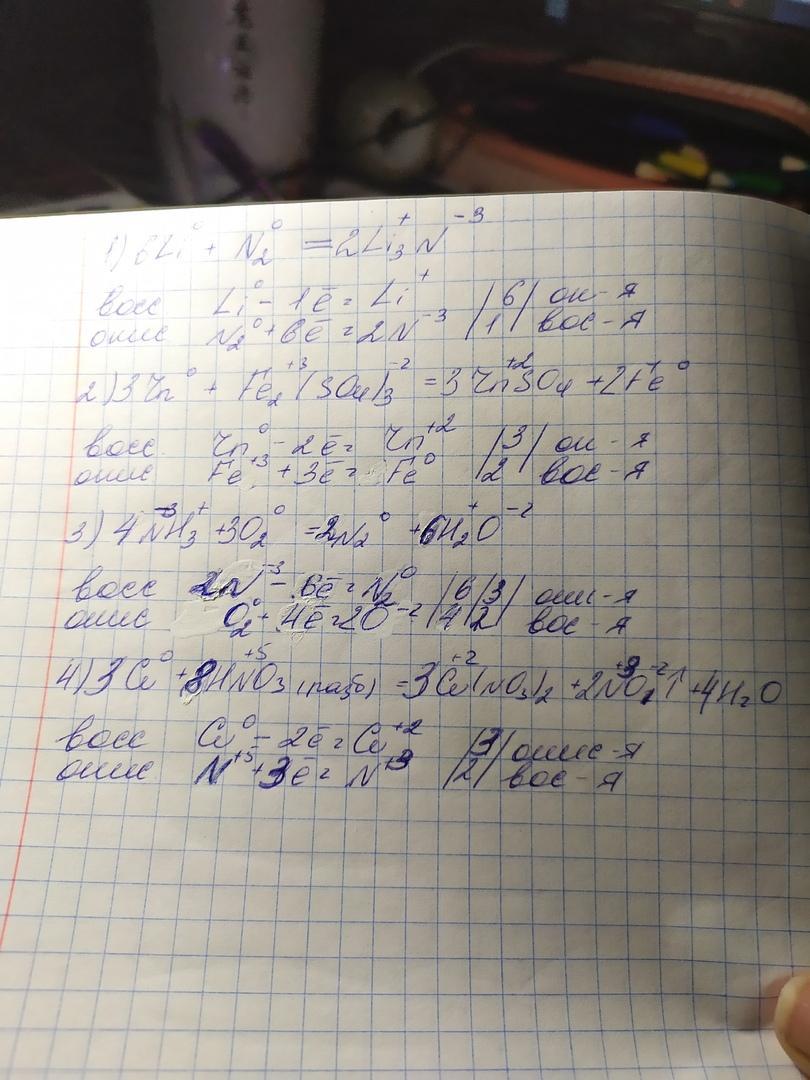 1) 6Li⁰ + N₂⁰ = 2Li₃⁺N⁻³
восс Li⁰ - 1ē = Li⁺ | 6 | ок-я
окис N₂⁰ + 6ē = 2N⁻³ | 1 | вос-я
2) 3Zn⁰ + Fe₂⁺³(SO₄)₃⁻² = 3Zn⁺²SO₄ + 2Fe⁰
восс Zn⁰ - 2ē = Zn⁺² | 3 | ок-я
окис Fe⁺³ + 3ē = Fe⁰ | 2 | вос-я
3) 4N⁻³H₃⁺ + 3O₂⁰ = 2N₂⁰ + 6H₂⁺O⁻²
восс 2N⁻³ - 6ē = N₂⁰ | 6 | 3 | окис-я
окис O₂⁰ + 4ē = 2O⁻² | 4 | 2 | вос-я
4) 3Cu⁰ + 8HN⁺⁵O₃ (разб) = 3Cu⁺²(NO₃)₂ + 2NO↑ + 4H₂O
восс Cu⁰ - 2ē = Cu⁺² | 3 | окис-я
окис N⁺⁵ + 3ē = N⁺³ | 2 | вос-я